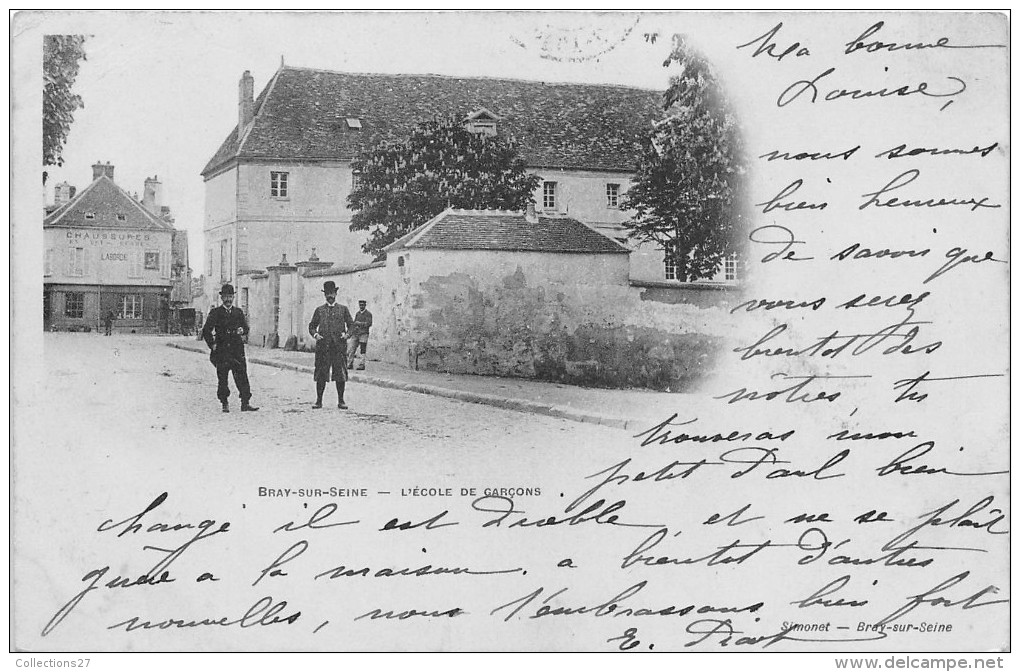 CHAUSSURES
LABORDE
Ma bonne
Louise,
nous sommes
bien heureux
de savoir que
vous serez
bientot des
nôtres, tu
trouveras mon
petit Paul bien
BRAY-SUR-SEINE — L'ÉCOLE DE GARÇONS
changé il est diable et ne se plaît
guère a la maison. a bientot d'autres
nouvelles, nous t'embrassons bien fort
E.
Simonet — Bray-sur-Seine
Collections27
www.delcampe.net